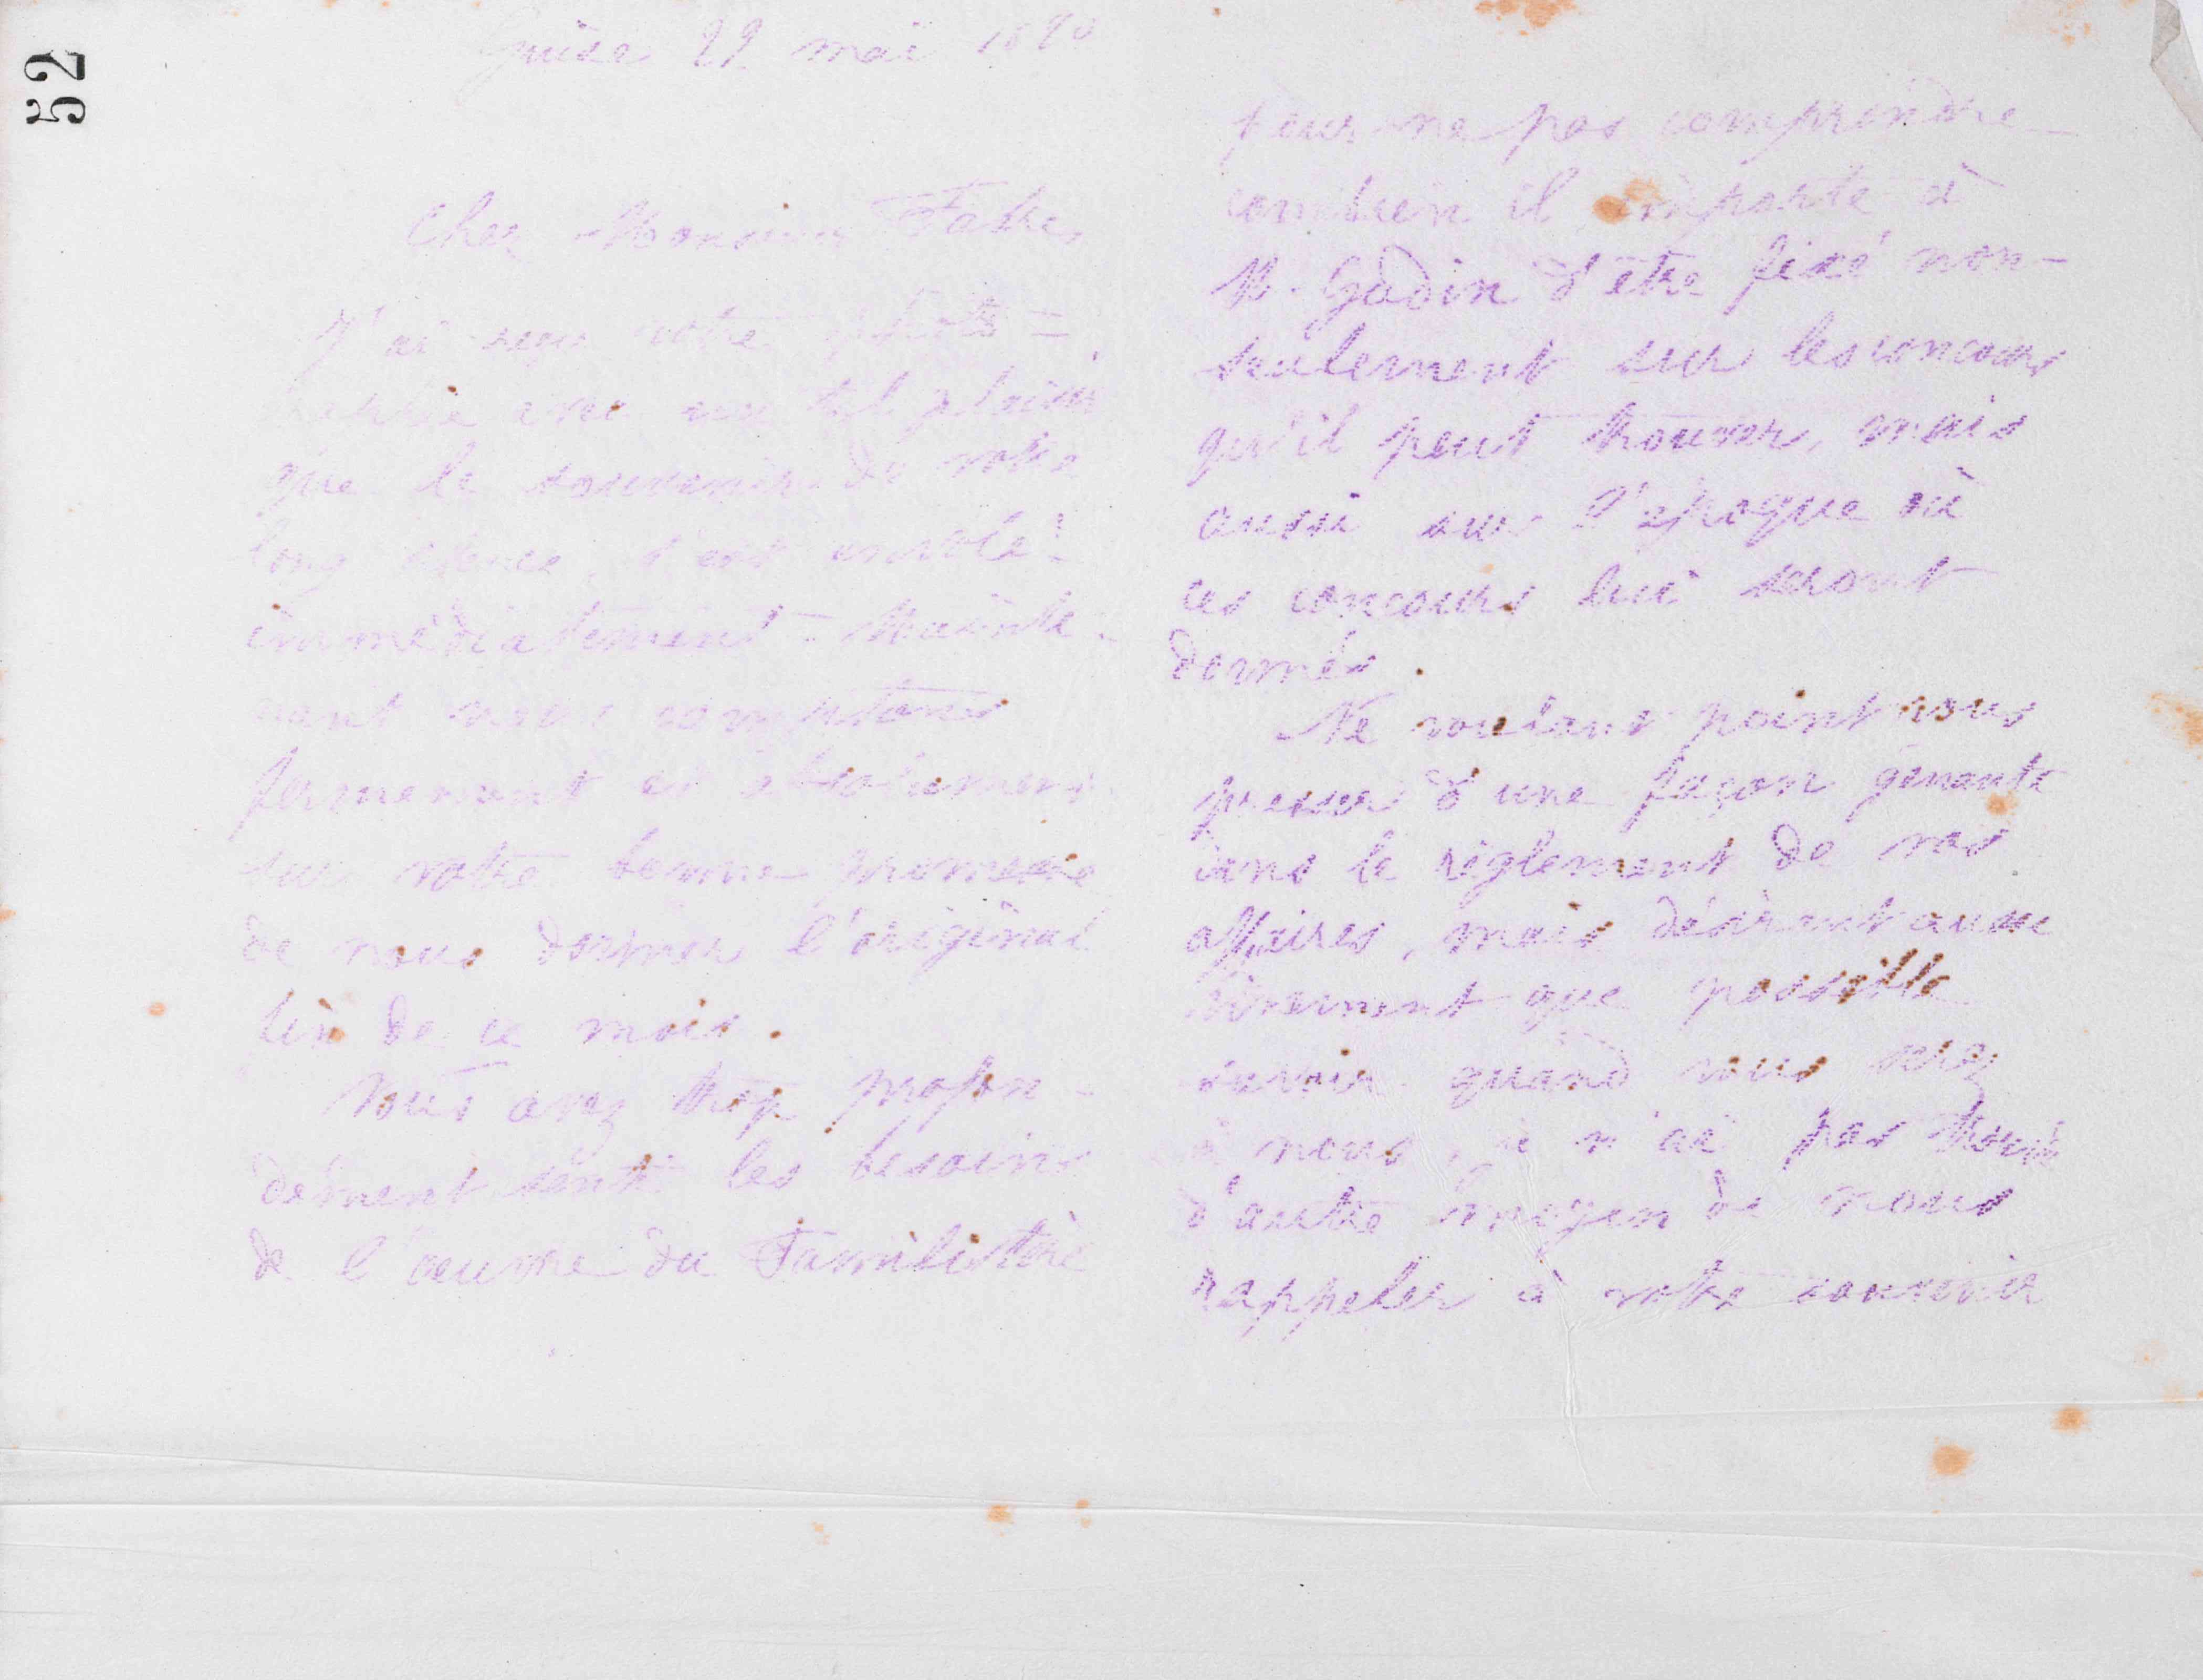 52
Guise 22 mai 1880
Cher Monsieur Fabre,
J'ai reçu votre photo=
graphie avec un tel plaisir
que le souvenir de votre
long silence s'est envolé
immédiatement. Mainte-
nant nous comptons
fermement et absolument
sur votre bonne promesse
de nous donner l'original
fin de ce mois.
Vous avez trop profon-
dément senti les besoins
de l'œuvre du Familistère
pour ne pas comprendre
combien il importe à
M. Godin d'être fixé non-
seulement sur les concours
qu'il peut trouver, mais
aussi sur l'époque où
ces concours lui seront
donnés.
Ne voulant point vous
presser d'une façon gênante
dans le règlement de vos
affaires, mais désirant aussi
vivement que possible
savoir quand vous serez
à nous, je n'ai pas trouvé
d'autre moyen de nous
rappeler à votre souvenir